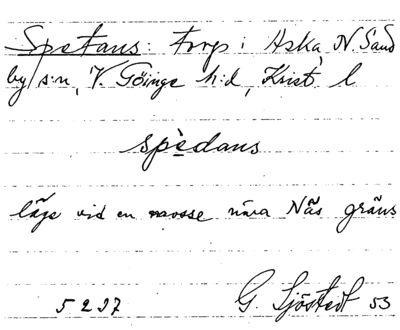 Spetans: torp i Aska, N. Sand
by s:n, V. Göinge h:d, Krist. l
spèdans
låge vid en mosse nära Näs gräns
5 2 37 G. Sjöstedt 53